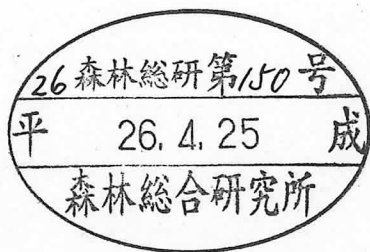 26森林総研第150号
平 26.4.25 成
森林総合研究所